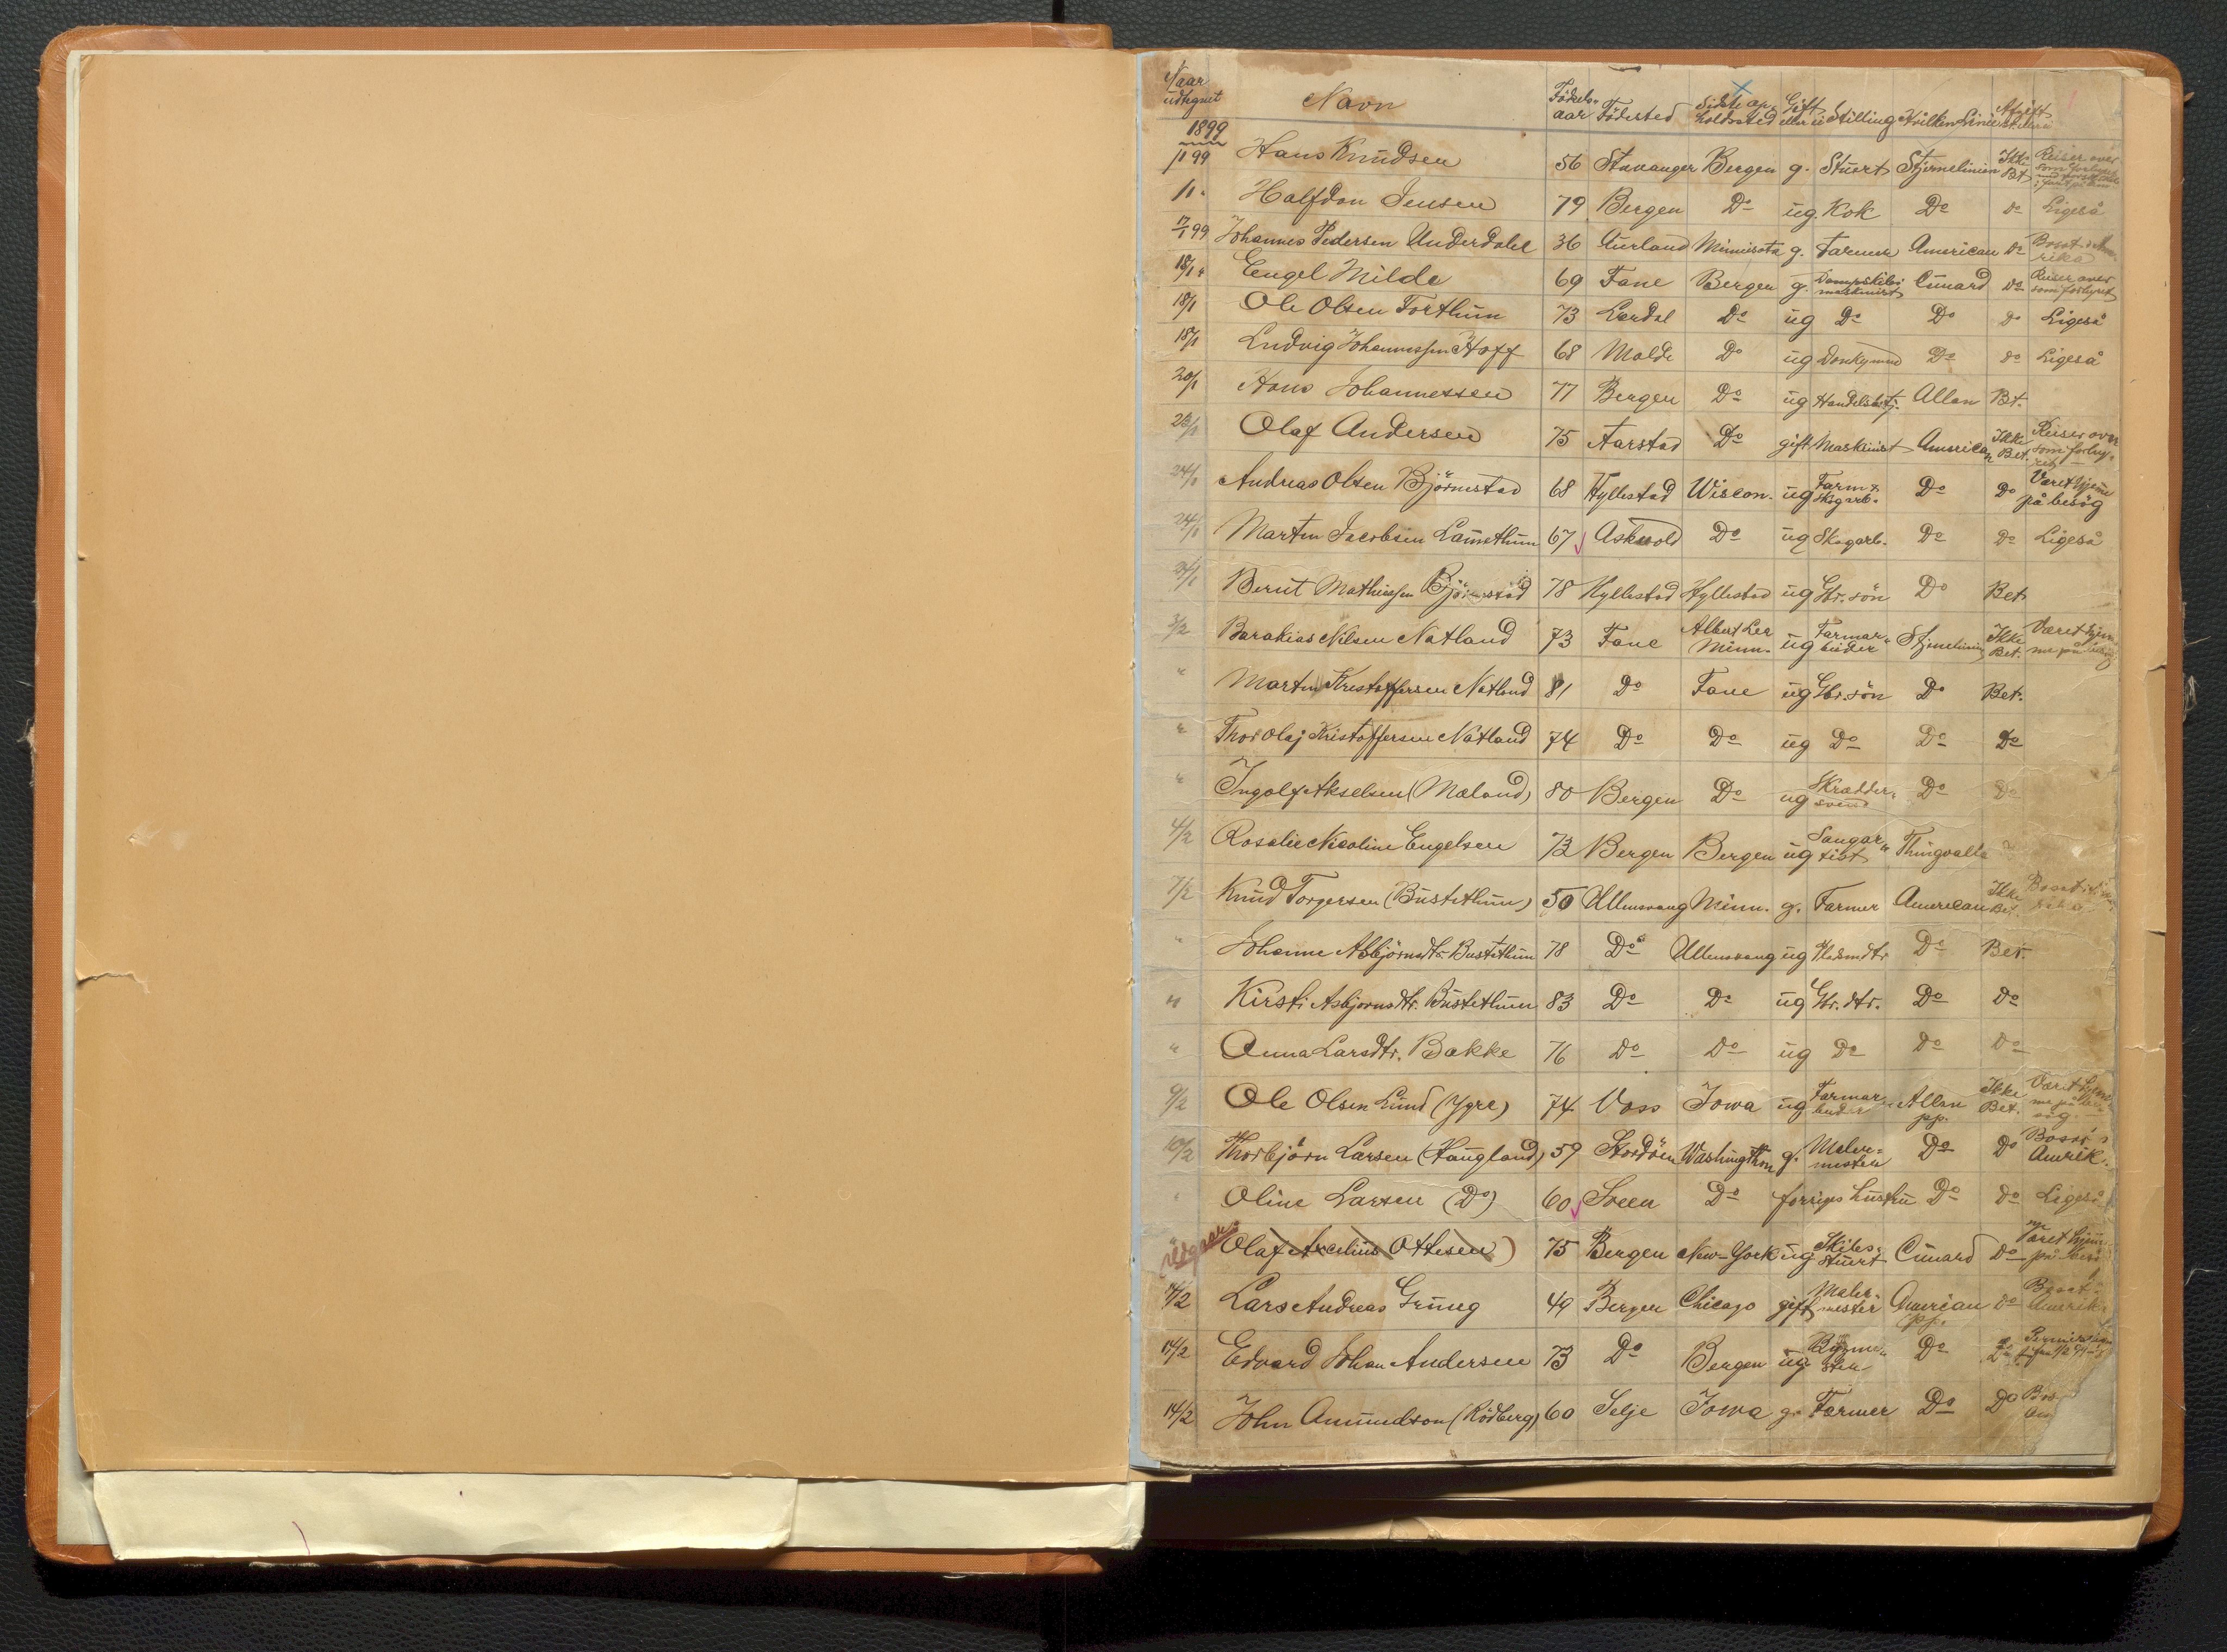 Naar udtegnet Navn Födsels- aar Födested Sidste op- holdssted Gift eller ü Stilling Hvilken Linie Afgift
1899
1/1 99 Hans Knudsen 56 Stavanger Bergen g. Stuert Stjernelinien Ikke Bt Reiser over som forhyret
1/1 " Halfdan Jensen 79 Bergen Do üg. Kok Do Do Ligeså
17/1 99 Johannes Pedersen Underdahl 36 Aurland Minnisota g. Farmer American Do Bosat i Ame- rika
18/1 " Engel Milde 69 Fane Bergen g. Dampskibs- maskinist Cunard Do Reiser over som forhyret
18/1 Ole Olsen Forthun 73 Lerdal Do üg Do Do Do Ligeså
18/1 Ludvig Johannessen Hoff 68 Molde Do üg Donkymand Do Do Ligeså
20/1 Hans Johannessen 77 Bergen Do üg Handelsbetj. Allan Bt.
23/1 Olaf Andersen 75 Aarstad Do gift Maskinist American Ikke Bet. Reiser over som forhy- ret
24/1 Andreas Olsen Björnestad 68 Hyllestad Wiscon. üg Farm & Skogarb. Do Do Været hjeme på besög
24/1 Martin Jacobsen Lamethun 67 Askvold Do üg Skogarb. Do Do Ligeså
24/1 Bernt Mathiassen Björnestad 78 Hyllestad Hyllestad üg Gbr. sön Do Bet
3/2 Barakias Nilsen Natland 73 Fane Albert Lea Minn. üg Farmar- beider Stjernelinien Ikke Bet. Været hjem- me på besög
" Martin Kristoffersen Natland 81 Do Fane üg Gbr. sön Do Bet.
" Thor Olaj Kristoffersen Natland 74 Do Do üg Do Do Do
" Ingolf Akselsen (Mæland) 80 Bergen Do üg Skrædder- svend Do Do
4/2 Rosalie Nicoline Engelsen 73 Bergen Bergen üg Sangar- tist Thingvalla
7/2 Knud Torgersen (Bustethun) 50 Ullensvang Minn. g. Farmer American Ikke Bet. Bosat i Ame- rika
" Johanne Asbjörnsdtr. Bustethun 78 Do Ullensvang üg Husmdtr Do Bet.
" Kirsti Asbjornsdtr. Bustethun 83 Do Do üg Gbr. dtr. Do Do
" Anna Larsdtr. Bakke 76 Do Do üg Do Do Do
9/2 Ole Olsen Lund (Ygre) 74 Voss Iowa üg Farmar- beider Allan pp. Ikke Bet. Været hjem- me på be- sög
10/2 Thorbjörn Larsen (Haugland) 59 Stordöen Washington g. Maler- mester Do Do Bosat i Amerik.
" Oline Larsen (Do) 60 Sveen Do forriges hustru Do Do Ligeså
udgaar Olaf Arcelius Ottesen) 75 Bergen New-York üg. Skibs- stuert Cunard Do Været hjem- me på besög
14/2 Lars Andreas Grung 49 Bergen Chicago gift Maler- mester American pp. Do Bosat i Amerik.
14/2 Edvard Johan Andersen 73 Do Bergen üg Do Do
14/2 John Amundson (Rödberg) 60 Selje Iowa g. Farmer Do Do Bos